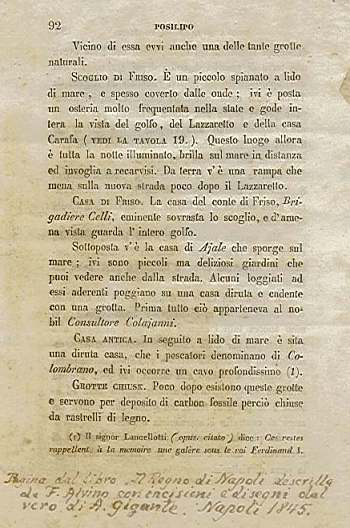 92 POSILIPO
Vicino di essa evvi anche una delle tante grotte
naturali.
SCOGLIO DI FRISO. È un piccolo spianato a lido
di mare, e spesso coverto dalle onde; ivi è posta
un osteria molto frequentata nella state e gode in-
tera la vista del golfo, del Lazzaretto e della casa
Carafa (VEDI LA TAVOLA 19.). Questo luogo allora
è tutta la notte illuminato, brilla sul mare in distanza
ed invoglia a recarvisi. Da terra v'è una rampa che
mena sulla nuova strada poco dopo il Lazzaretto.
CASA DI FRISO. La casa del conte di Friso, Bri-
gadiere Celli, eminente sovrasta lo scoglio, e d'ame-
na vista guarda l'intero golfo.
Sottoposta v'è la casa di Ajale che sporge sul
mare; ivi sono piccoli ma deliziosi giardini che
puoi vedere anche dalla strada. Alcuni loggiati ad
essi aderenti poggiano su una casa diruta e cadente
con una grotta. Prima tutto ciò apparteneva al no-
bil Consultore Colajanni.
CASA ANTICA. In seguito a lido di mare è sita
una diruta casa, che i pescatori denominano di Co-
lombrano, ed ivi occorre un cavo profondissimo (1).
GROTTE CHIUSE. Poco dopo esistono queste grotte
e servono per deposito di carbon fossile perciò chiuse
da rastrelli di legno.
(1) Il signor Lancellotti (opus. citato) dice: Ces restes
rappellent à la memoire une galère sous le roi Ferdinand I.
Pagina dal libro, Il Regno di Napoli descritto
da F. Alvino con incisioni e disegni dal
vero di A. Gigante. Napoli 1845.